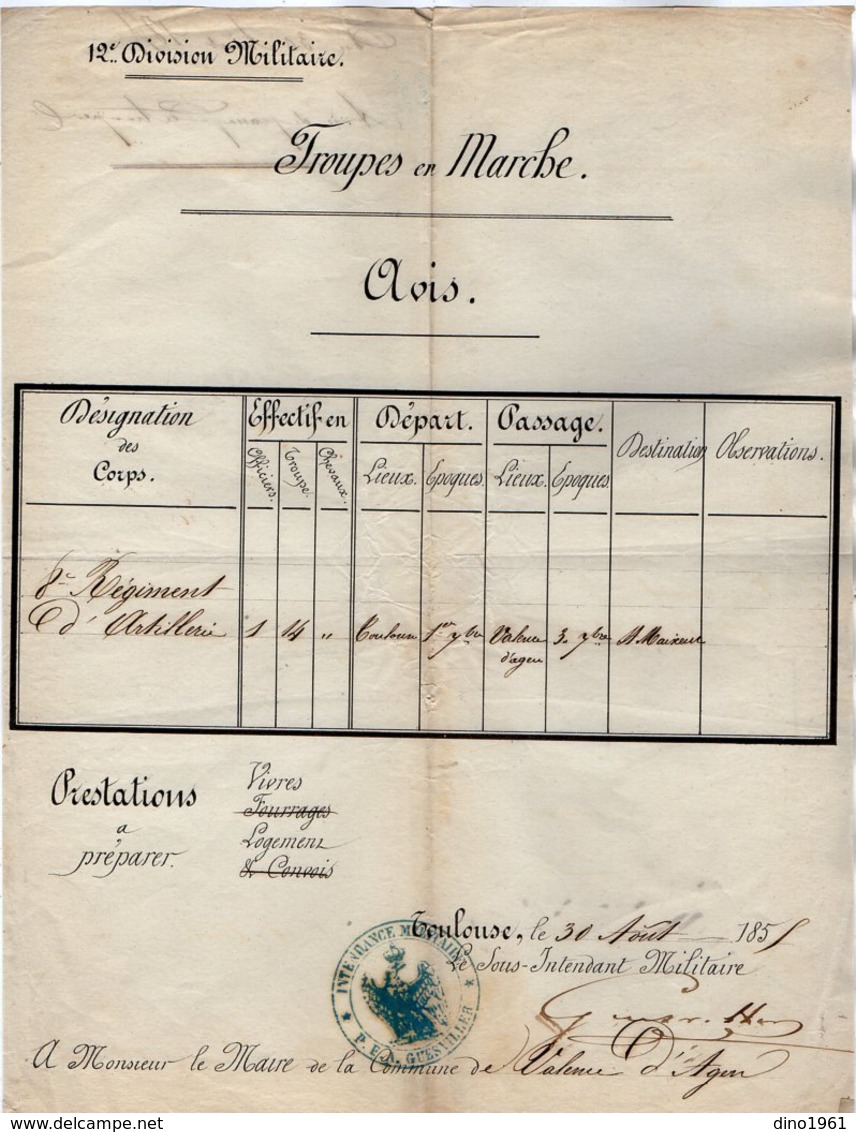 12e Division Militaire.
Troupes en Marche.
Avis.
Désignation des Corps.
Effectif en
Officiers.
Troupe.
Chevaux.
Départ.
Lieux.
Epoques.
Passage.
Lieux.
Epoques.
Destination
Observations.
8e Régiment
d'Artillerie
1
14
"
Toulouse
1er 7bre
Valence
d'agen
3. 7bre
St Maixent
Prestations
a
préparer.
Vivres
Fourrages
Logement
& Convois
Toulouse, le 30 Août 1855
Le Sous-Intendant Militaire
★ INTENDANCE MILITAIRE ★
P. F. A. GUESVILLER
A Monsieur le Maire de la Commune de Valence d'Agen
www.delcampe.net
dino1961